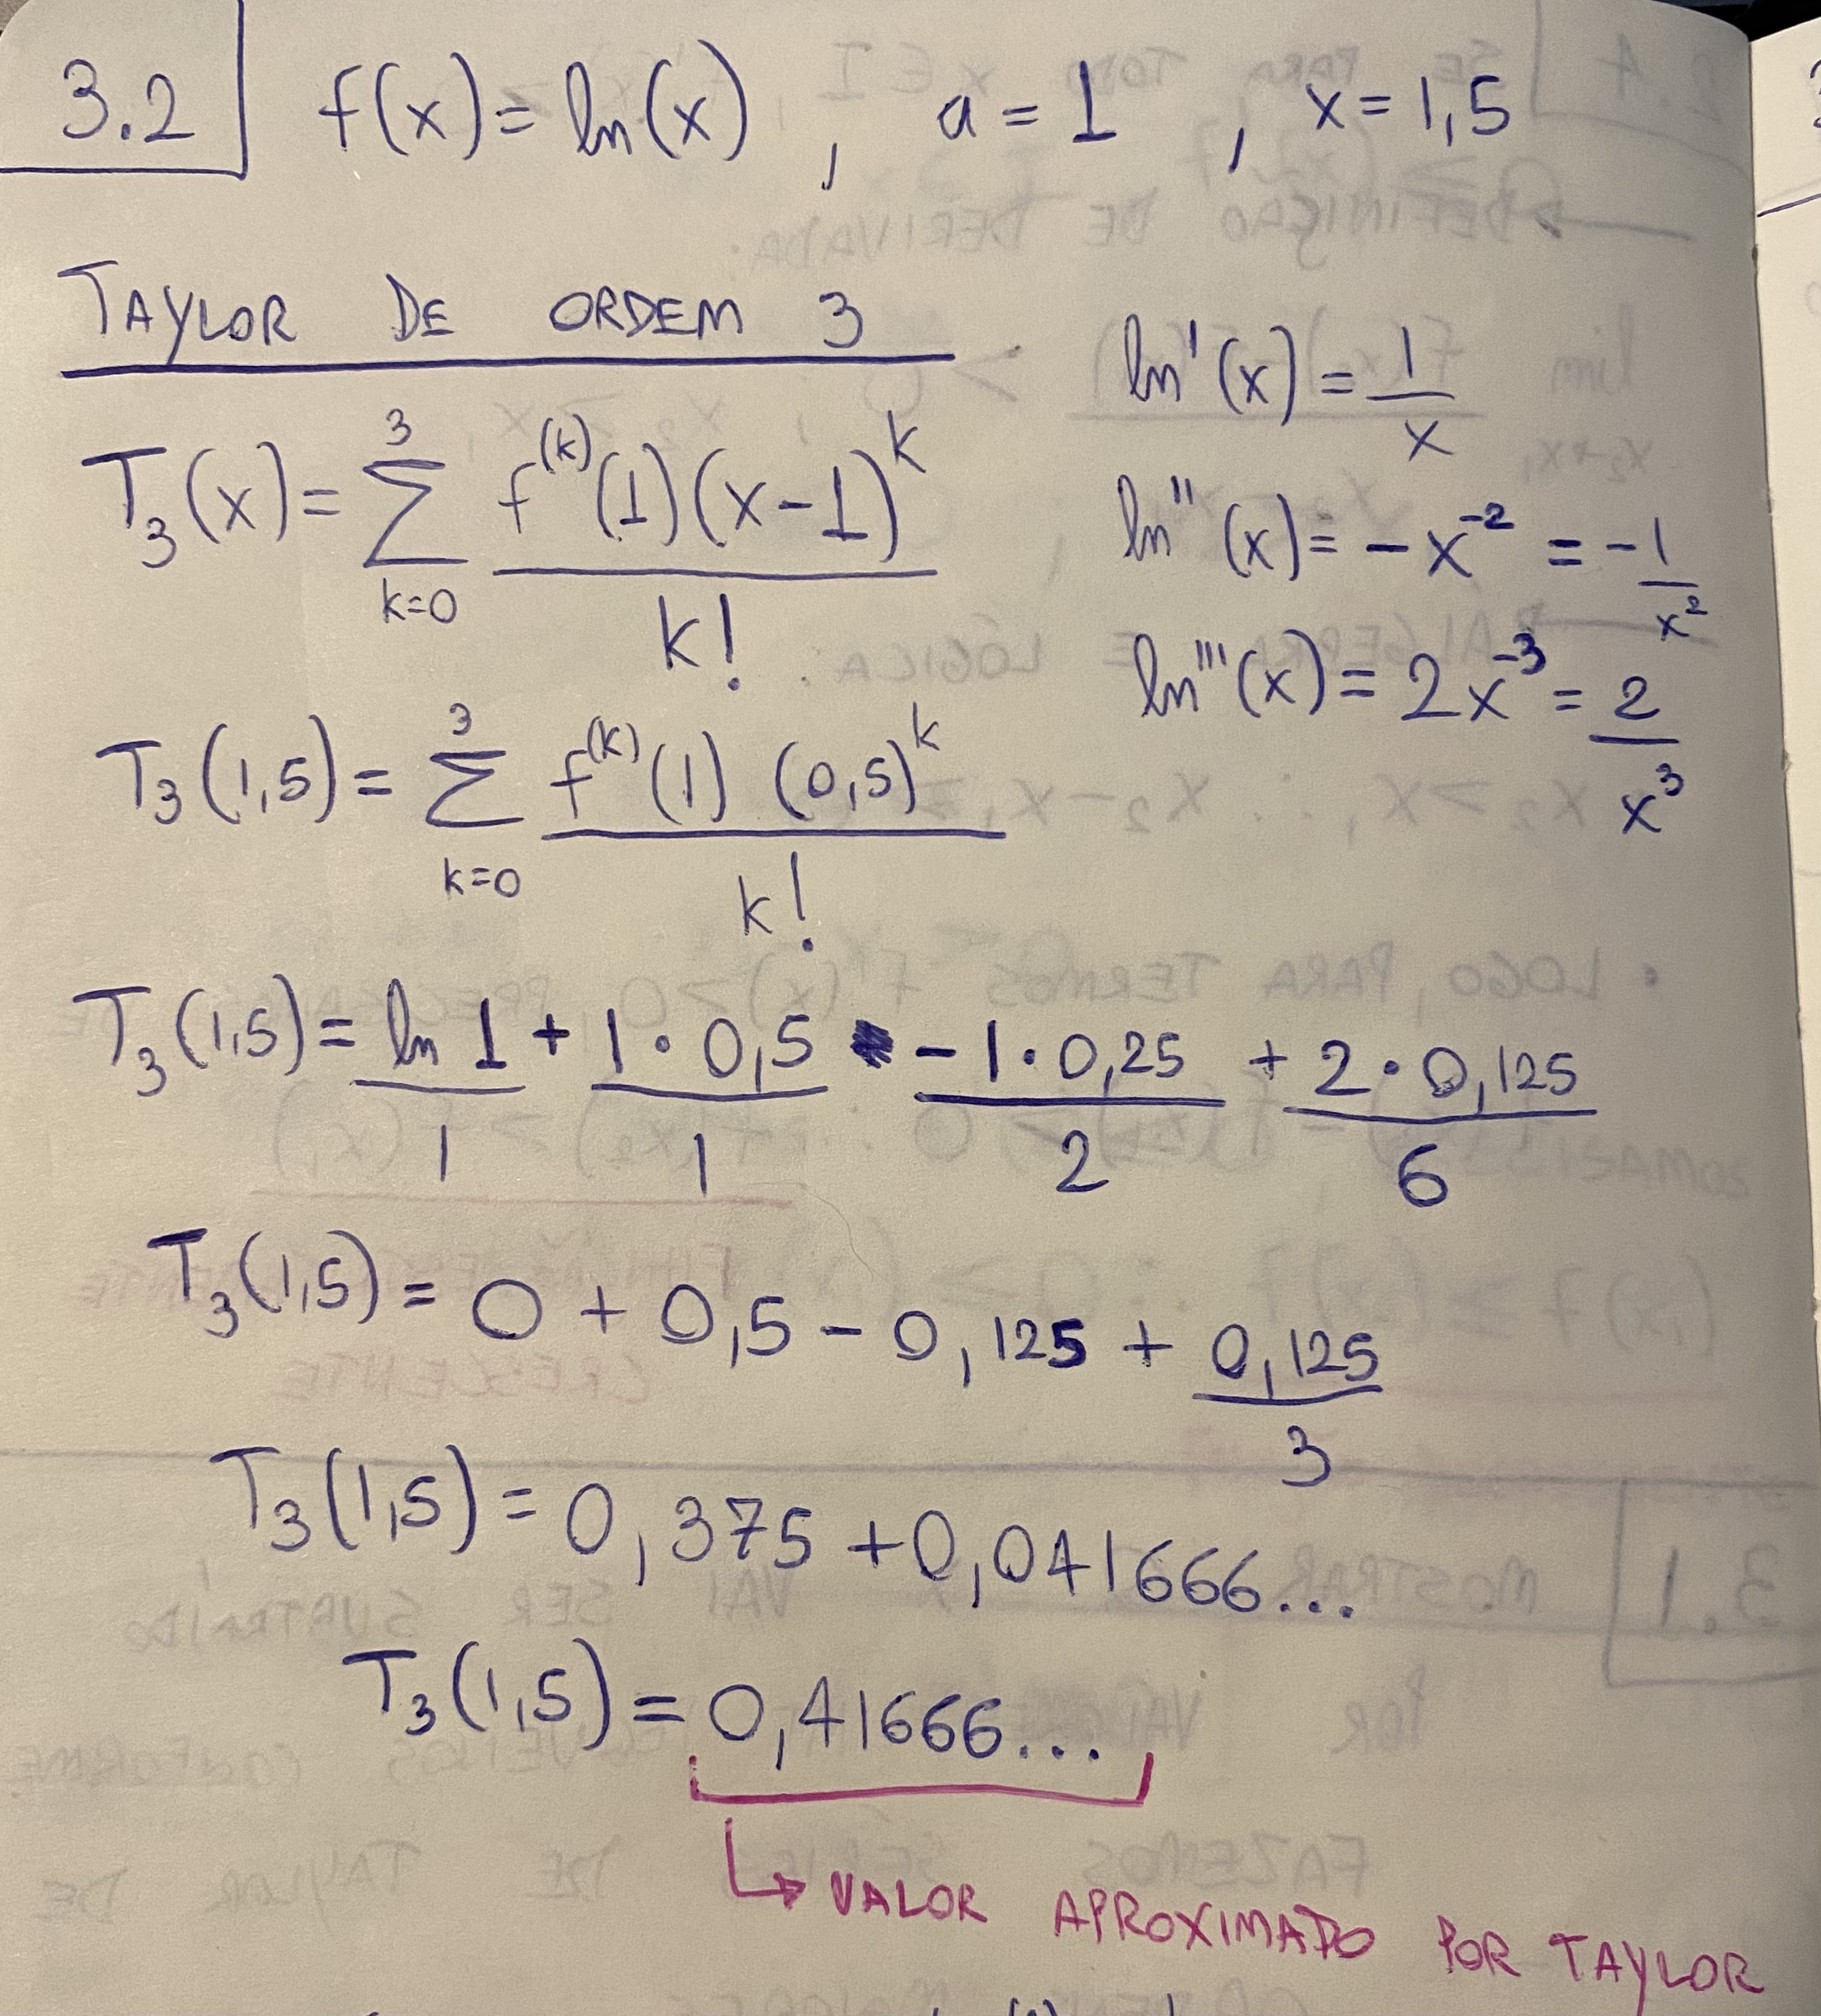 3.2 f(x) = ln(x) , a = 1 , x = 1,5
TAYLOR DE ORDEM 3
T₃(x) = Σ_{k=0}^{3} f^(k)(1)(x-1)^k / k!
ln'(x) = 1/x
ln''(x) = -x^-2 = -1/x²
ln'''(x) = 2x^-3 = 2/x³
T₃(1,5) = Σ_{k=0}^{3} f^(k)(1) (0,5)^k / k!
T₃(1,5) = ln 1 / 1 + 1 · 0,5 / 1 - 1 · 0,25 / 2 + 2 · 0,125 / 6
T₃(1,5) = 0 + 0,5 - 0,125 + 0,125 / 3
T₃(1,5) = 0,375 + 0,041666...
T₃(1,5) = 0,41666...
↳ VALOR APROXIMADO POR TAYLOR